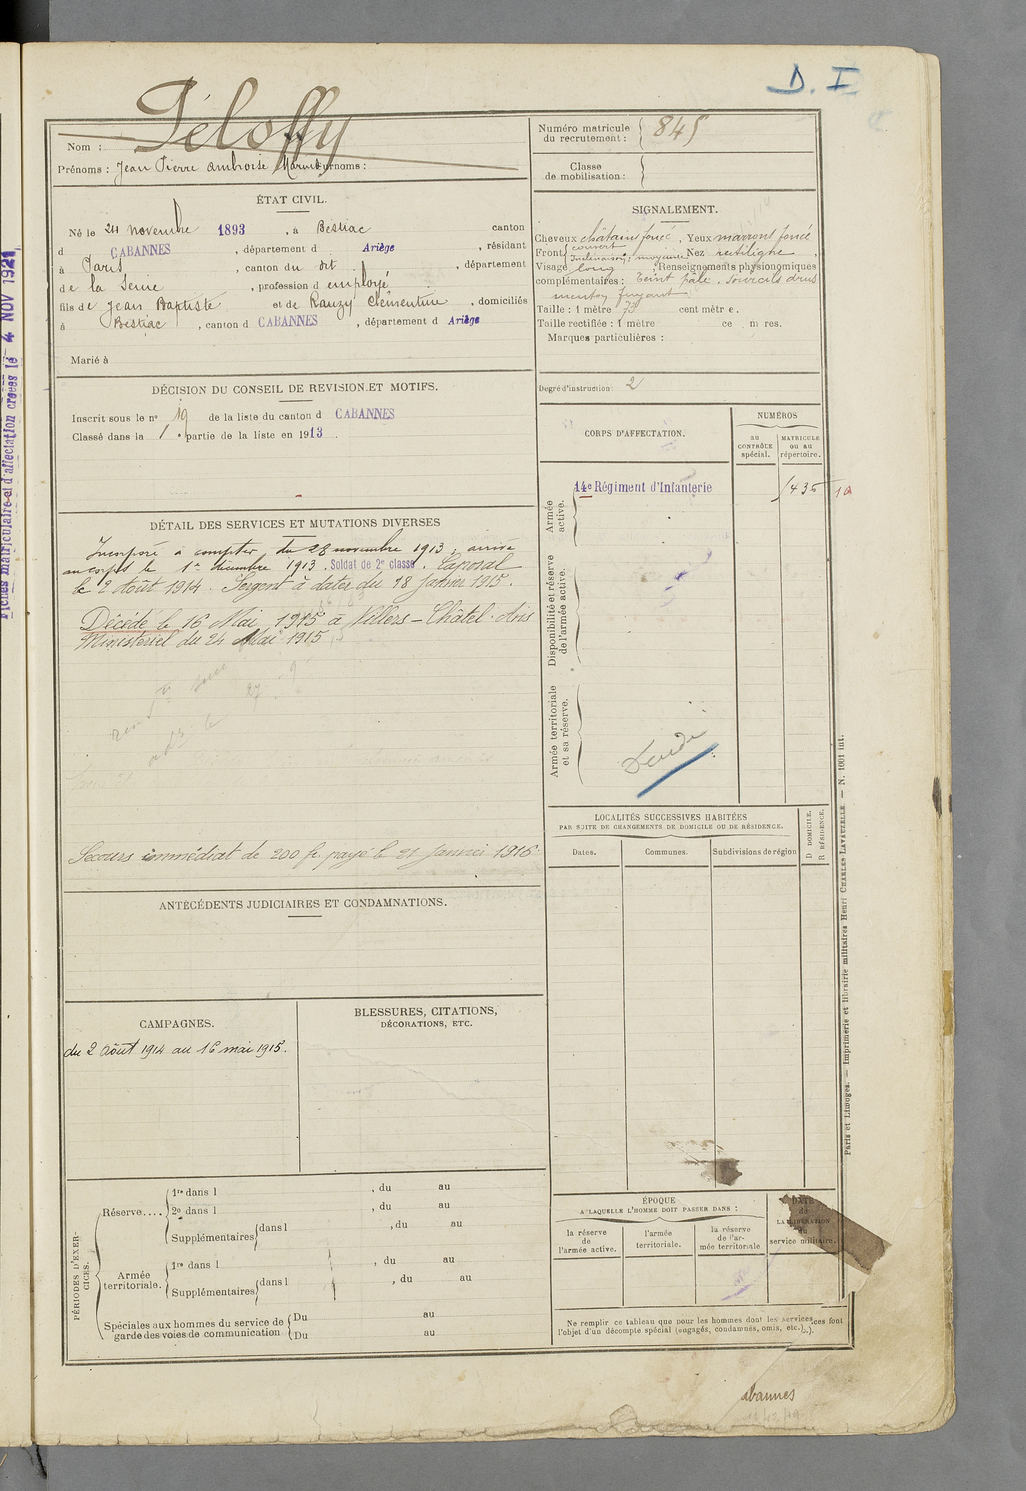 D. I
Péloffy
Nom :
Prénoms : Jean Pierre Ambroise Marius Surnoms :
Numéro matricule du recrutement : 845
Classe de mobilisation :
ÉTAT CIVIL.
Né le 24 novembre 1893, à Bestiac canton
d CABANNES, département d Ariège, résidant
à Paris, canton du dit, département
de la Seine, profession d employé
fils de Jean Baptiste et de Rauzy Clémentine, domiciliés
à Bestiac, canton d CABANNES, département d Ariège
Marié à
SIGNALEMENT.
Cheveux châtain foncé, Yeux marrons foncé
Front couvert
Inclinaison : moyenne Nez rectiligne,
Visage long, Renseignements physionomiques
complémentaires : Teint pâle, Sourcils drus
menton fuyant
Taille : 1 mètre 73 centimètre.
Taille rectifiée : 1 mètre ce m res.
Marques particulières :
Degré d'instruction : 2
DÉCISION DU CONSEIL DE REVISION ET MOTIFS.
Inscrit sous le n° 19 de la liste du canton d CABANNES
Classé dans la 1e partie de la liste en 1913.
CORPS D'AFFECTATION.
NUMÉROS
au CONTRÔLE spécial.
MATRICULE ou au répertoire.
Armée active.
14e Régiment d'Infanterie
1435
Disponibilité et réserve de l'armée active.
Armée territoriale et sa réserve.
DÉTAIL DES SERVICES ET MUTATIONS DIVERSES
Incorporé à compter du 28 novembre 1913, arrivé
au corps le 1er décembre 1913. Soldat de 2e classe. Caporal
le 2 Août 1914. Sergent à dater du 18 Janvier 1915.
Décédé le 16 Mai 1915 à Villers-Châtel. Avis
Ministériel du 24 Mai 1915
Secours immédiat de 200 fr payé le 21 Janvier 1916.
LOCALITÉS SUCCESSIVES HABITÉES
PAR SUITE DE CHANGEMENTS DE DOMICILE OU DE RÉSIDENCE.
Dates.
Communes.
Subdivisions de région
D DOMICILE.
R RÉSIDENCE.
ANTÉCÉDENTS JUDICIAIRES ET CONDAMNATIONS.
CAMPAGNES.
du 2 Août 1914 au 16 mai 1915.
BLESSURES, CITATIONS,
DÉCORATIONS, ETC.
PÉRIODES D'EXERCICES.
Réserve....
1re dans l , du au
2e dans l , du au
Supplémentaires dans l , du au
Armée territoriale.
1re dans l , du au
Supplémentaires dans l , du au
Spéciales aux hommes du service de garde des voies de communication
Du au
Du au
ÉPOQUE
A LAQUELLE L'HOMME DOIT PASSER DANS :
la réserve de l'armée active.
l'armée territoriale.
la réserve de l'armée territoriale
DATE de LA LIBÉRATION du service militaire.
Ne remplir ce tableau que pour les hommes dont les services font
l'objet d'un décompte spécial (engagés, condamnés, omis, etc.).
Paris et Limoges. — Imprimerie et librairie militaires Henri CHARLES-LAVAUZELLE. — N. 1001 int.
Fiches matriculaire et d'affectation créées le 4 NOV 1921
abannes